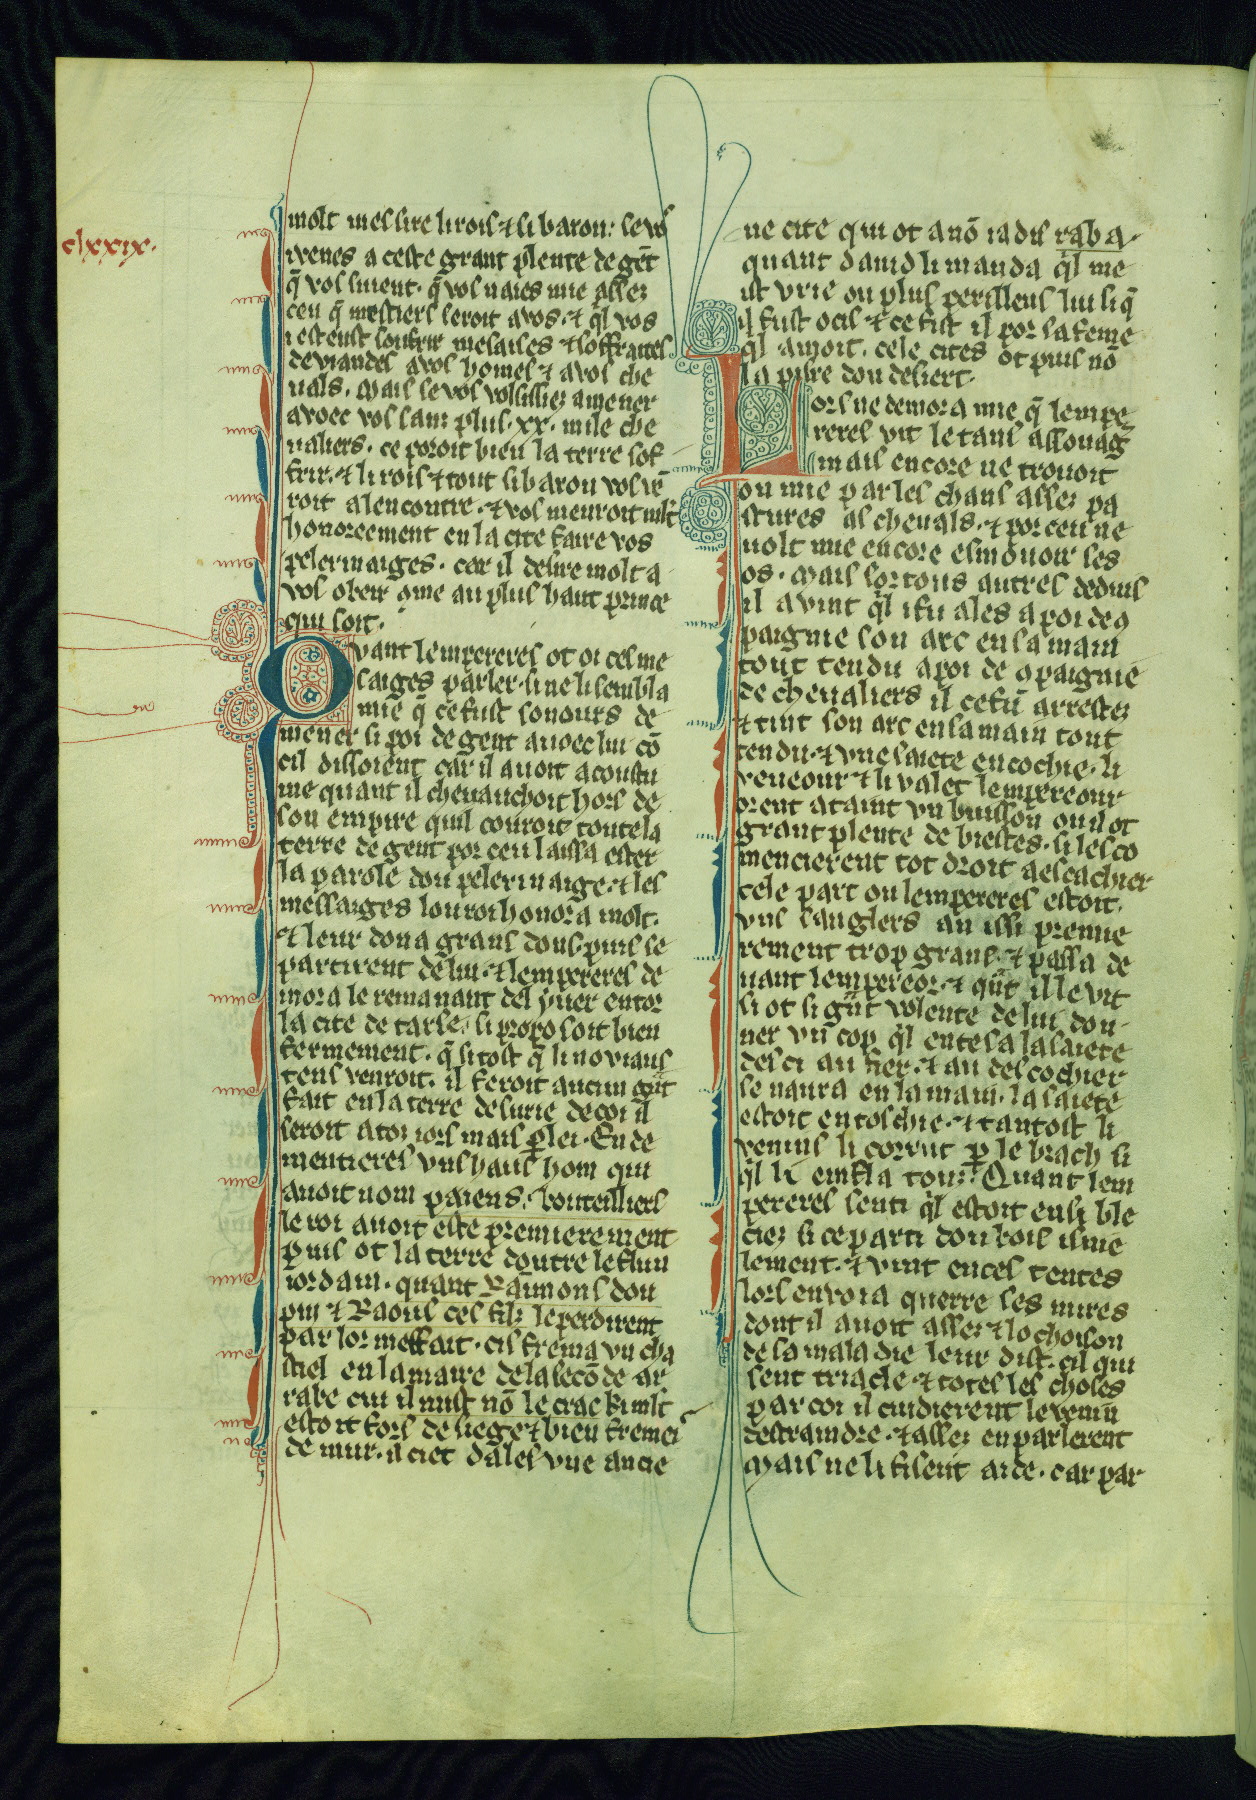 clxxix.
molt mes sire li rois ⁊ si baron: se vos
i venes a ceste grant plente de gēt
q̄ vos siuent. q̄ vos naies mie assez
ceu q̄ mestiers seroit avos. ⁊ q̄l vos
i esteust soufrir mesaises ⁊ soffraites
de viandes avos homes ⁊ avos che
uals. Mais se vos volsissiez amener
avoec vos sans plus .xx. mile che
ualiers. ce poroit bien la terre sof
frir. ⁊ li rois ⁊ tout si baron vos ir
roit alencontre. ⁊ vos menroit mlt
honoreement en la cite faire vos
pelerinaiges. car il desire molt a
vos obeir ɔme au plus haut prince
qui soit.
Quant lempereres ot oi ces me
saiges parler. si ne li sembla
mie q̄ ce fust sonours de
mener si poi de gent avoec lui cō
cil dissoient car il avoit acoustu
me quant il chevauchoit hors de
son empire quil couroit toute la
terre de gent por ceu laissa ester
la parole dou pelerinaige. ⁊ les
messaiges lou roi honora molt.
⁊ leur dona grans dons. puis se
partirent de lui. ⁊ lempereres de
mora le remanant del yuer entor
la cite de tarse. si proposoit bien
fermement. q̄ sitost q̄ li noviaus
tens venroit. il feroit aucun gūt
fait en la terre de surie de coi il
seroit a toz iors mais ꝑ lei. En de
mentieres vns haus hom qui
avoit nom paiens. bouteilliers
le roi avoit este premierement
puis ot la terre doutre le flun
iordain. quant Raimons dou
pui ⁊ Raous ces filz le perdirent
par lor meffait. cis frema vn cha
stiel en la maire de la secōde ar
rabe cui il mist nō le crac ki mlt
estoit fors de siege ⁊ bien fremei
de mur. il ciet dales vne ancie
ne cite qui ot a nō iadis raba.
quant dauid li manda q̄l me
ist vrie ou plus perilleus liu si q̄
il fust ocis ⁊ ce fist il por sa feme
q̄l amoit. cele cites ot puis nō
la pirre dou desert.
Lors ne demora mie q̄ lempe
reres vit le tans assouag
mais encore ne trovoit
on mie par les chans assez pa
stures as chevals. ⁊ por ceu ne
uolt mie encore esmovoir ses
os. Mais sor tous autres deduis
il avint q̄l i fu ales a poi de ɔ
paignie son arc en sa main
tout tendu a poi de ɔpaignie
de chevaliers il ce fu arrestez
⁊ tint son arc en sa main tout
tendu. ⁊ vne saiete encochie. li
veneour ⁊ li valet lempereour
orent ataint vn buisson ou il ot
grant plente de biestes. si les co
mencierent tot droit a escachier
cele part ou lempereres estoit.
vns sanglers an issi premie
rement trop grans. ⁊ passa de
uant lempereor. ⁊ qūt il le vit
si ot si gūt volente de lui don
ner vn cop q̄l entesa la saiete
desci au fier. ⁊ au descochier
se navra en la main. la saiete
estoit entoschie. ⁊ tantost li
venins li corrut ꝑ le brach si
q̄l li enfla touz. Quant lem
pereres senti q̄l estoit ensi ble
ciez si ce parti dou bois isme
lement. ⁊ vint en ces tentes
lors envoia querre ses mires
dont il avoit assez ⁊ lochoison
de sa maladie leur dist. cil qui
sent triacle ⁊ totes les choses
par coi il cuidierent le venin
destraindre. ⁊ assez en parlerent
Mais ne li fisent aide. car par